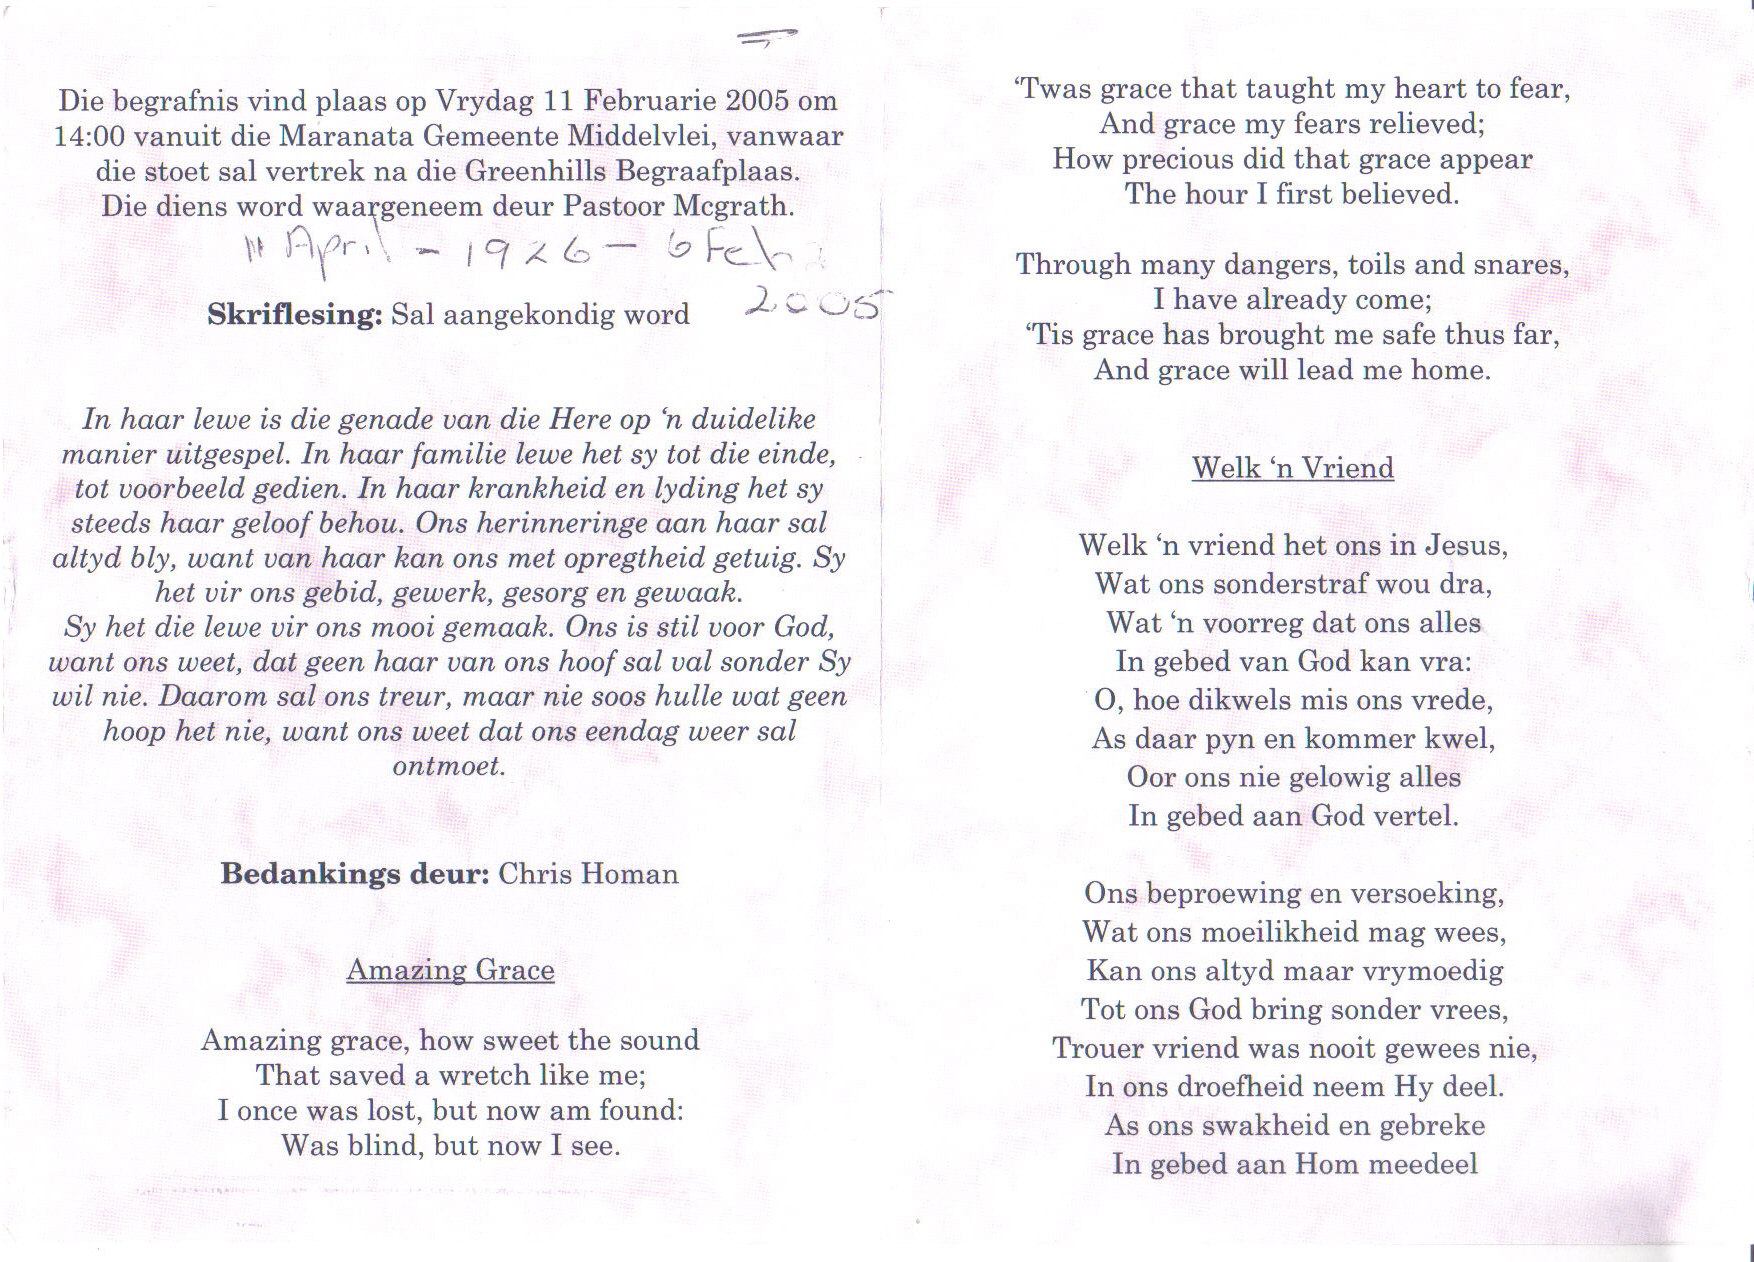 Die begrafnis vind plaas op Vrydag 11 Februarie 2005 om
14:00 vanuit die Maranata Gemeente Middelvlei, vanwaar
die stoet sal vertrek na die Greenhills Begraafplaas.
Die diens word waargeneem deur Pastoor Mcgrath.
11 April - 1926 - 6 Feb
2005
Skriflesing: Sal aangekondig word
In haar lewe is die genade van die Here op ‘n duidelike
manier uitgespel. In haar familie lewe het sy tot die einde,
tot voorbeeld gedien. In haar krankheid en lyding het sy
steeds haar geloof behou. Ons herinneringe aan haar sal
altyd bly, want van haar kan ons met opregtheid getuig. Sy
het vir ons gebid, gewerk, gesorg en gewaak.
Sy het die lewe vir ons mooi gemaak. Ons is stil voor God,
want ons weet, dat geen haar van ons hoof sal val sonder Sy
wil nie. Daarom sal ons treur, maar nie soos hulle wat geen
hoop het nie, want ons weet dat ons eendag weer sal
ontmoet.
Bedankings deur: Chris Homan
Amazing Grace
Amazing grace, how sweet the sound
That saved a wretch like me;
I once was lost, but now am found:
Was blind, but now I see.
‘Twas grace that taught my heart to fear,
And grace my fears relieved;
How precious did that grace appear
The hour I first believed.
Through many dangers, toils and snares,
I have already come;
‘Tis grace has brought me safe thus far,
And grace will lead me home.
Welk ‘n Vriend
Welk ‘n vriend het ons in Jesus,
Wat ons sonderstraf wou dra,
Wat ‘n voorreg dat ons alles
In gebed van God kan vra:
O, hoe dikwels mis ons vrede,
As daar pyn en kommer kwel,
Oor ons nie gelowig alles
In gebed aan God vertel.
Ons beproewing en versoeking,
Wat ons moeilikheid mag wees,
Kan ons altyd maar vrymoedig
Tot ons God bring sonder vrees,
Trouer vriend was nooit gewees nie,
In ons droefheid neem Hy deel.
As ons swakheid en gebreke
In gebed aan Hom meedeel